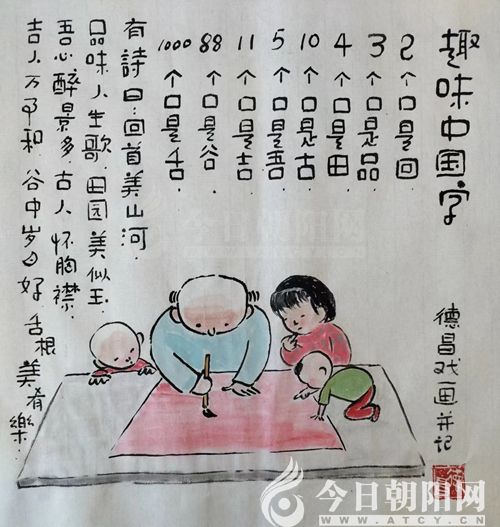 趣味中国字
2个口是回
3个口是品
4个口是田
10个口是古
5个口是吾
11个口是吉
88个口是谷
1000个口是舌
有詩曰:回首美山河.
品味人生歌.田园美似玉.
吾心醉景多.古人怀胸襟.
吉人万事和 谷中岁月好 舌根美肴樂.
德昌戏画并记
今日朝阳网
WWW.ATCY.CN